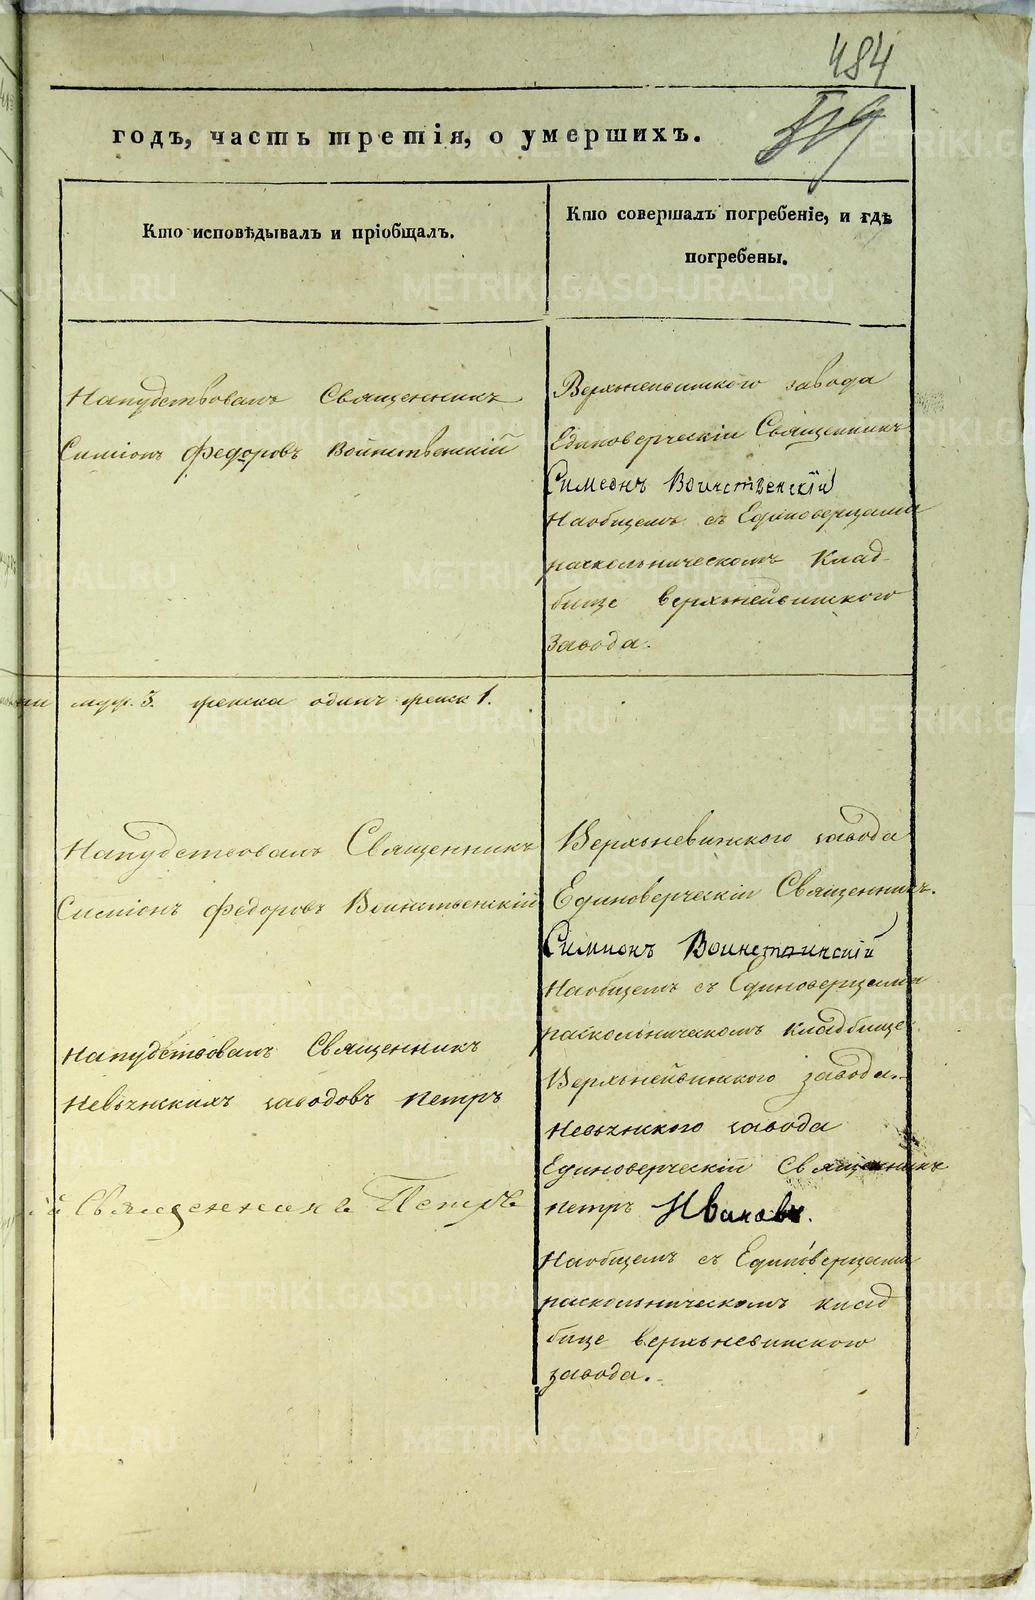 484
519
годъ, часть третія, о умершихъ.
Кто исповѣдывалъ и пріобщалъ.
Кто совершалъ погребеніе, и гдѣ
погребены.
Напудствовалъ Священникъ
Симіонъ Федоровъ Воинственскій
Верхьнейвинского завода
Единоверческіи Священникъ
Симеонъ Воинственскій
Наобщемъ съ Единоверцами
раскольническомъ Клад-
бище верхьнейвинского
завода.
муж. 3. женска одинъ женск 1.
Напудствовалъ Священникъ
Симіонъ Федоровъ Воинственскій
Верхьневинского завода
Единоверческіи Священникъ.
Симионъ Воинственскій
Наобщемъ съ Единоверцами
раскольническомъ кладбище
Верхьнейвинского завода.
Напудствовалъ Священникъ
Невьянскихъ заводовъ петръ
Священникъ Петръ
Невьянского завода
Единоверческій Священникъ
петръ Ивановъ.
Наобщемъ съ Единоверцами
раскольническомъ клад
бище верхьневинского
завода.
METRIKI.GASO-URAL.RU